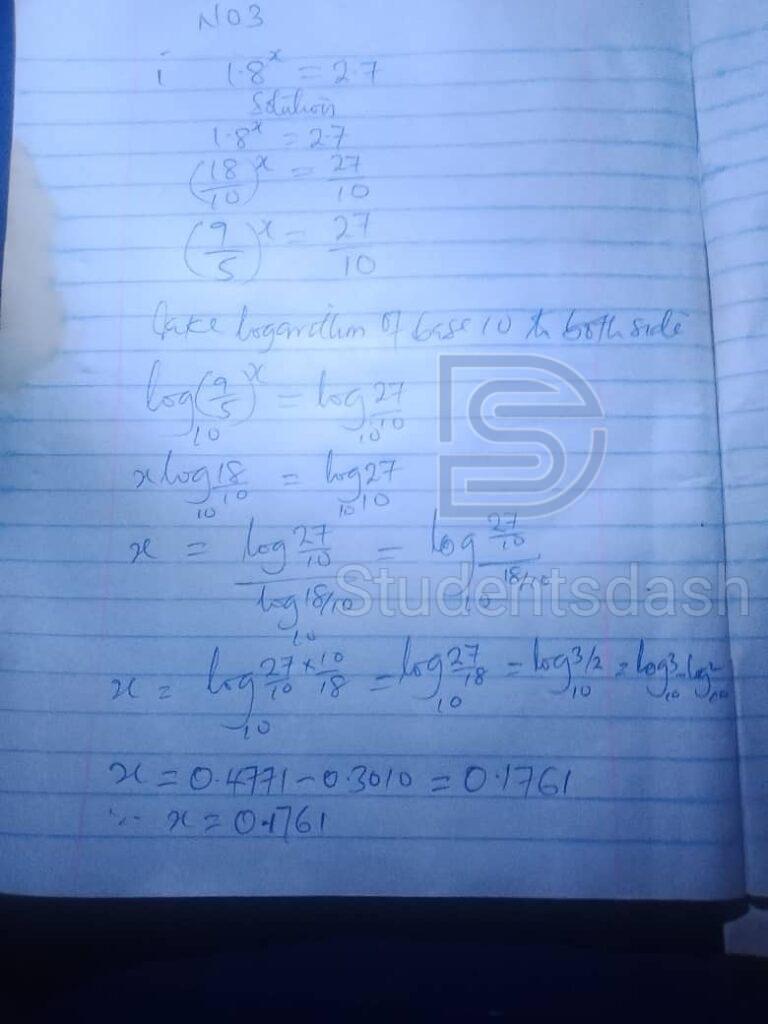 NO3
i 1.8^x = 2.7
Solution
1.8^x = 2.7
(18/10)^x = 27/10
(9/5)^x = 27/10
Take logarithm of base 10 to both side
log_10 (9/5)^x = log_10 27/10
x log_10 18/10 = log_10 27/10
x = log 27/10 / log_10 18/10 = log_10 27/10 / 18/10
Studentsdash
x = log_10 27/10 × 10/18 = log_10 27/18 = log_10 3/2 = log_10 3 - log_10 2
x = 0.4771 - 0.3010 = 0.1761
∴ x = 0.1761